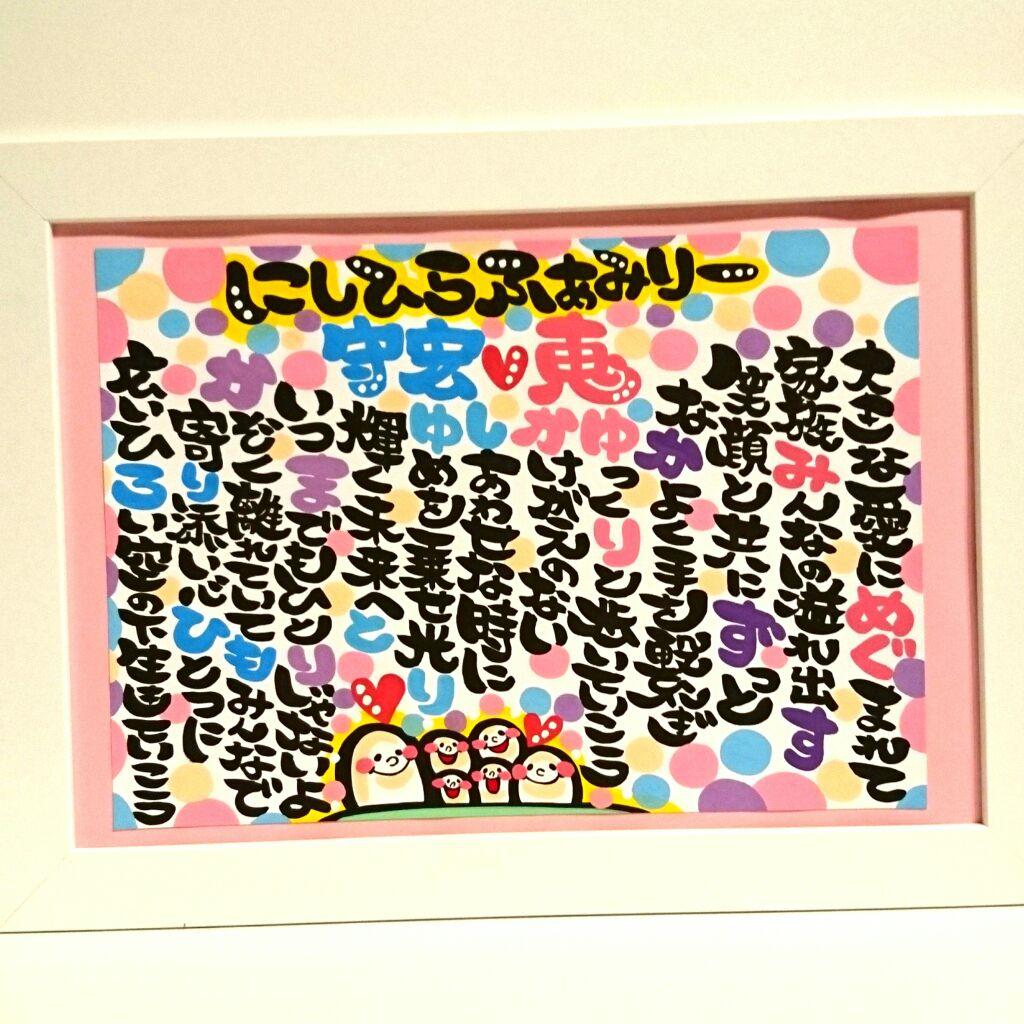 にしひらふぁみりー
守宏♥恵
大きな愛にめぐまれて
家族みんなの溢れ出す
笑顔と共にずっと
なかよく手を繋んば
ゆっくりと歩いていこう
かけがえのない
しあわせな時に
ゆめを乗せ光り
輝く未来へと
いつまでもひとりじゃないよ
かぞく離れていてもみんなで
寄り添い心ひとつに
広いひろい空の下生きていこう